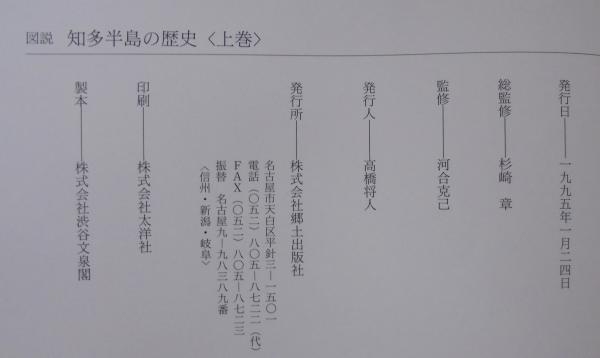 図説 知多半島の歴史〈上巻〉
発行日――一九九五年一月二四日
総監修――杉崎 章
監修――河合克己
発行人――高橋将人
発行所――株式会社郷土出版社
名古屋市天白区平針三―一五〇一
電話(〇五二)八〇五―八七二二(代)
FAX(〇五二)八〇五―八七二三
振替 名古屋九―九八三八九番
〈信州・新潟・岐阜〉
印刷――株式会社太洋社
製本――株式会社渋谷文泉閣